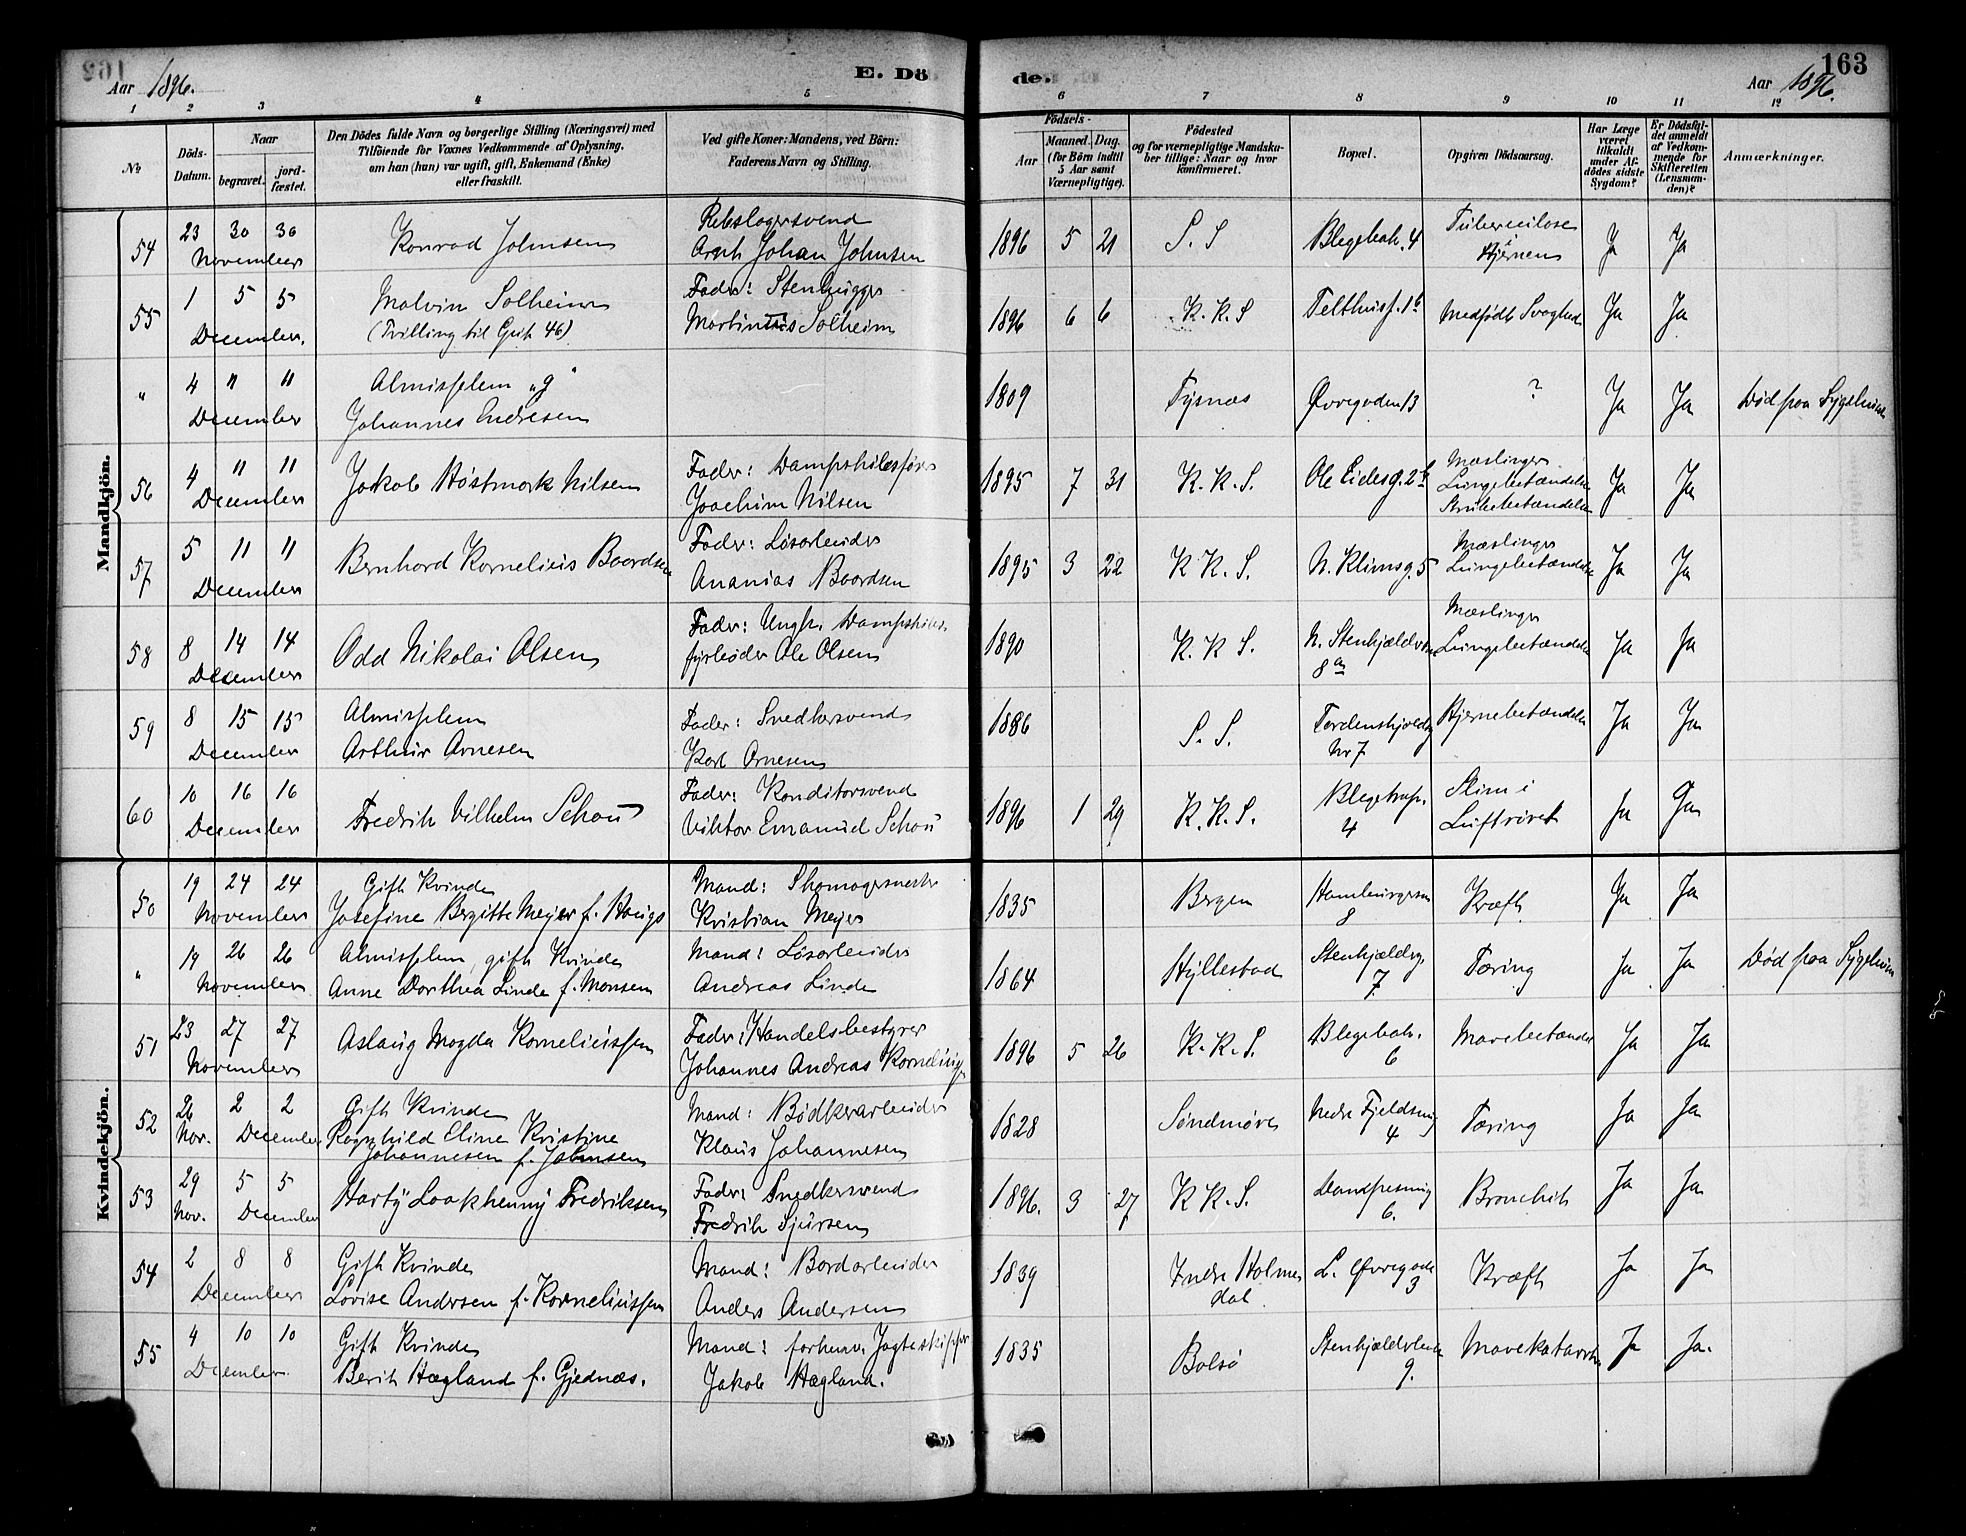 Aar 1896.
E. Döde.
163
Aar 1896.
1 2 3 4 5 6 7 8 9 10 11 12
№
Döds-Datum.
Naar
begravet.
jord-fæstet.
Den Dödes fulde Navn og borgerlige Stilling (Næringsvei) med
Tilföiende for Voxnes Vedkommende af Oplysning,
om han (hun) var ugift, gift, Enkemand (Enke)
eller fraskilt.
Ved gifte Koner: Mandens, ved Börn:
Faderens Navn og Stilling.
Födsels-
Aar
Maaned. Dag.
(for Börn indtil
5 Aar samt
Værnepligtige).
Födested
og for værnepligtige Mandska-
ber tillige: Naar og hvor
konfirmeret.
Bopæl.
Opgiven Dödsaarsag.
Har Læge
været
tilkaldt
under Af-
dödes sidste
Sygdom?
Er Dödsfal-
det anmeldt
af Vedkom-
mende for
Skifteretten
(Lensman-
den)?
Anmærkninger.
Mandkjön.
54 23 30 30 November
Konrad Johnsen
Rebslagersvend
Arnt Johan Johnsen
1896 5 21 S. S Blegebak. 4
Tuberculose
i
Hjernen
Ja Ja
55 1 5 5 December.
Malvin Solheim
(Tvilling til Guth 46)
Fader: Stenhugger
Martinus Solheim
1896 6 6 K. K. S Telthusg. 1b Medfødt Svaghed Ja Ja
" 4 " " December
Almisselem „g"
Johannes Andresen
1809 Tysnæs Øvregaden 13 ? Ja Ja Død paa Sygehuset
56 4 " " December
Jakob Høstmark Nilsen
Fader: Dampskibsfører
Joachim Nilsen
1895 7 31 K. K. S. Ole Eidesg. 2b
Mæslinger
Lungebetændelse
Strubebetændelse
Ja Ja
57 5 11 11 December
Bernhard Kornelius Baardsen
Fader: Løsarbeider
Ananias Baardsen
1895 3 22 K K. S. N. Klimsg. 5
Mæslinger
Lungebetændelse
Ja Ja
58 8 14 14 December
Odd Nikolai Olsen
Fader: Ungk. Dampskibs-
fyrbøder Ole Olsen
1890 K. K S. N. Stenkjælder
8a
Mæslinger
Lungebetændelse
Ja Ja
59 8 15 15 December
Almisselem
Arthur Arnesen
Fader: Snedkersvend
Karl Arnesen
1886 S. S. Tordenskjoldsg
Nr 7
Hjernebetændelse Ja Ja
60 10 16 16 December
Fredrik Vilhelm Schou
Fader: Konditorsvend
Viktor Emanuel Schou
1896 1 29 K. K. S. Blegetrap.
4
Slim i
Luftrøret
Ja Ja
Kvindekjön.
50 19 24 24 November
Gift Kvinde
Josefine Bergitte Meyer f. Haugs
Mand: Skomagermester
Kristian Meyer
1835 Bergen Hamburgersm
8
Kræft Ja Ja
" 19 26 26 November
Almisselem, gift Kvinde
Anne Dorthea Linde f. Monsen
Mand: Løsarbeider
Andreas Linde
1864 Hyllestad Stenkjælderg.
7.
Tæring Ja Ja Død paa Sygehuset
51 23 27 27 November
Aslaug Magda Korneliussen
Fader: Handelsbestyrer
Johannes Andreas Korneliussen
1896 5 26 K. K. S. Blegebak.
6
Mavebetændelse Ja Ja
52 26 Nov. 2 2 December
Gift Kvinde
Ragnhild Eline Kristine
Johannesen f. Johnsen
Mand: Bødkerarbeider
Klaus Johannesen
1828 Søndmøre Nedre Fjeldsmug
4
Tæring Ja Ja
53 29 Nov. 5 5 December
Harty Laakhenny Fredriksen
Fader: Snedkersvend
Fredrik Sjursen
1896. 3 27 K K. S. Dankesmug
6.
Bronchit Ja Ja
54 2 8 8 December
Gift Kvinde
Lovise Andersen f. Korneliussen
Mand: Bordarbeider
Anders Andersen
1839 Indre Holme
dal
L. Øvregade
3
Kræft Ja Ja
55 4 10 10 December
Gift Kvinde
Berit Hægland f. Gjednæs.
Mand: forhenv. Jagteskipper
Jakob Hægland.
1835 Bolsø Stenkjælder
9.
Mavekatarrh Ja Ja.